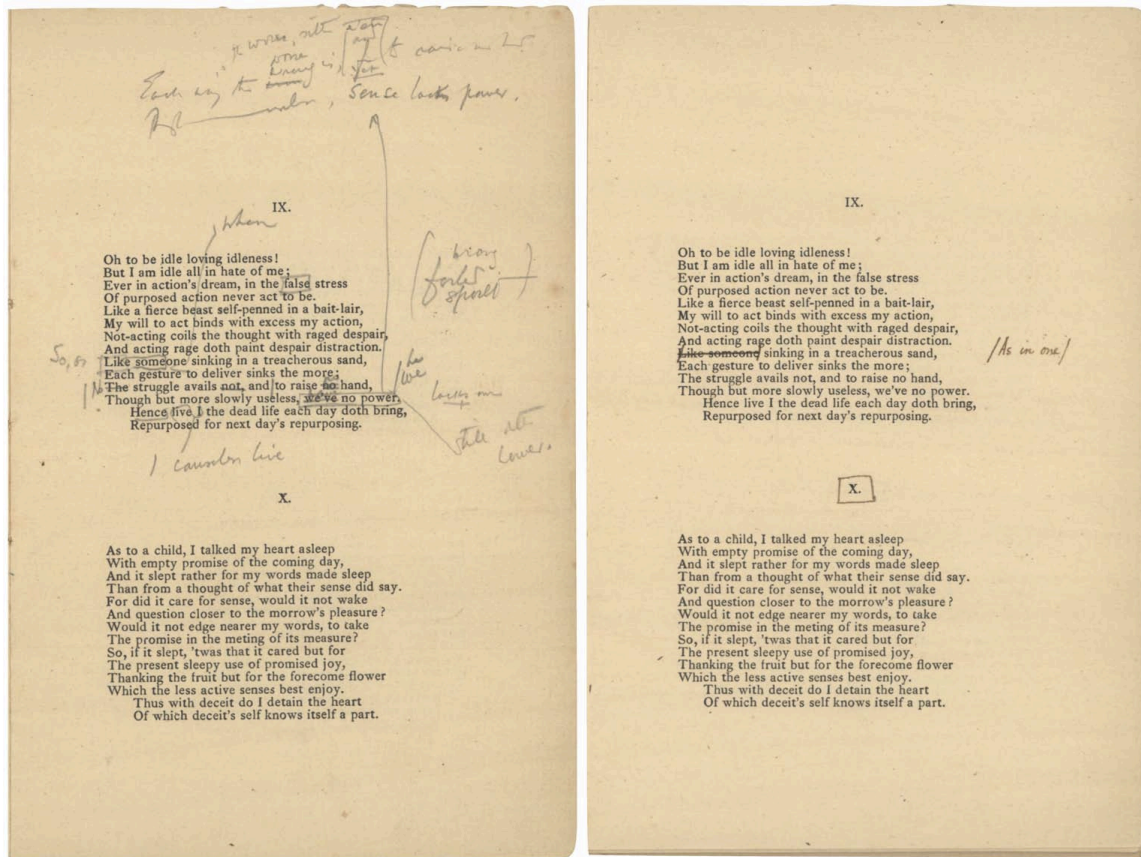 Each way the
sense lacks power.
IX.
when
Oh to be idle loving idleness!
But I am idle all in hate of me;
Ever in action's dream, in the false stress
Of purposed action never act to be.
Like a fierce beast self-penned in a bait-lair,
My will to act binds with excess my action,
Not-acting coils the thought with raged despair,
And acting rage doth paint despair distraction.
Like someone sinking in a treacherous sand,
Each gesture to deliver sinks the more;
The struggle avails not, and to raise no hand,
Though but more slowly useless, we've no power.
Hence live I the dead life each day doth bring,
Repurposed for next day's repurposing.
So, as
I causeless live
X.
As to a child, I talked my heart asleep
With empty promise of the coming day,
And it slept rather for my words made sleep
Than from a thought of what their sense did say.
For did it care for sense, would it not wake
And question closer to the morrow's pleasure?
Would it not edge nearer my words, to take
The promise in the meting of its measure?
So, if it slept, 'twas that it cared but for
The present sleepy use of promised joy,
Thanking the fruit but for the forecome flower
Which the less active senses best enjoy.
Thus with deceit do I detain the heart
Of which deceit's self knows itself a part.
IX.
Oh to be idle loving idleness!
But I am idle all in hate of me;
Ever in action's dream, in the false stress
Of purposed action never act to be.
Like a fierce beast self-penned in a bait-lair,
My will to act binds with excess my action,
Not-acting coils the thought with raged despair,
And acting rage doth paint despair distraction.
Like someone sinking in a treacherous sand, /As in one/
Each gesture to deliver sinks the more;
The struggle avails not, and to raise no hand,
Though but more slowly useless, we've no power.
Hence live I the dead life each day doth bring,
Repurposed for next day's repurposing.
X.
As to a child, I talked my heart asleep
With empty promise of the coming day,
And it slept rather for my words made sleep
Than from a thought of what their sense did say.
For did it care for sense, would it not wake
And question closer to the morrow's pleasure?
Would it not edge nearer my words, to take
The promise in the meting of its measure?
So, if it slept, 'twas that it cared but for
The present sleepy use of promised joy,
Thanking the fruit but for the forecome flower
Which the less active senses best enjoy.
Thus with deceit do I detain the heart
Of which deceit's self knows itself a part.